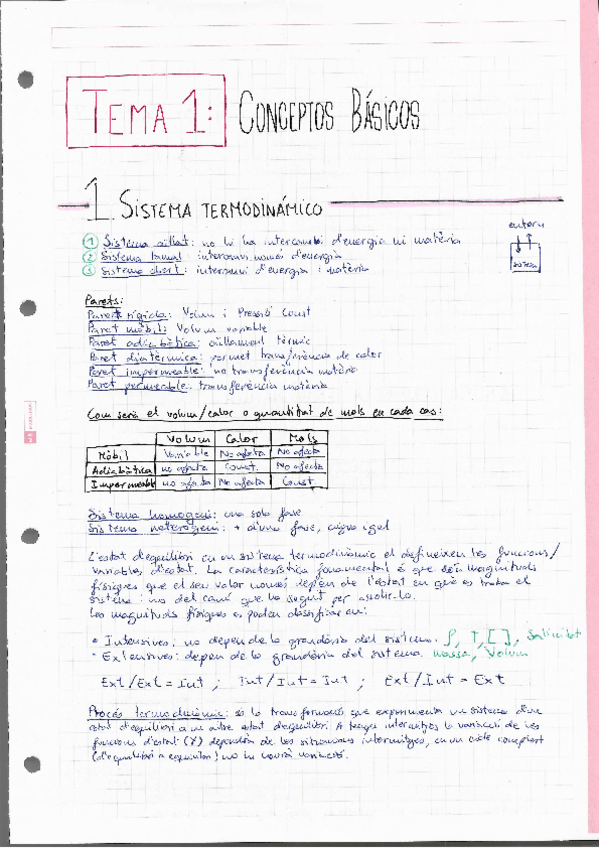 TEMA 1: CONCEPTOS BÁSICOS
1. SISTEMA TERMODINÁMICO
① Sistema aïllat: no hi ha intercambi d'energia ni matèria
② Sistema tancat: intercanvi només d'energia
③ Sistema obert: intercanvi d'energia i matèria
entorn
SISTEMA
Parets:
Paret rígida: Volum i Pressió const
Paret mòbil: Volum variable
Paret adiabàtica: aïllament tèrmic
Paret diatèrmica: permet transferència de calor
Paret impermeable: no transferència matèria
Paret permeable: transferència matèria
Com serà el volum/calor o quantitat de mols en cada cas:
Volum Calor Mols
Mòbil Variable No afecta No afecta
Adiabàtica no afecta Const. No afecta
Impermeable no afecta No afecta Const
Sistema homogeni: una sola fase
Sistema heterogeni: + d'una fase, aigua igel
L'estat d'equilibri en un sistema termodinàmic el defineixen les funcions/
variables d'estat. La característica fonamental é que són magnituds
físiques que el seu valor només depèn de l'estat en què es troba el
sistema i no del camí que ha seguit per assolir-lo.
Les magnituds físiques es poden classificar en:
• Intensives: no depen de la grandària del sistema. ρ, T, [ ], Salinitat
• Extensives: depen de la grandària del sistema. massa, Volum
Ext/Ext = Int ; Int/Int = Int ; Ext/Int = Ext
Procés termodinàmic: és la transformació que experimenta un sistema d'un
estat d'equilibri a un altre estat d'equilibri. A temps la variació de les
funcions d'estat (Y) dependrà de les situacions intermitges, en un cicle complet
(d'equilibri a equilibri) no hi haurà variació.